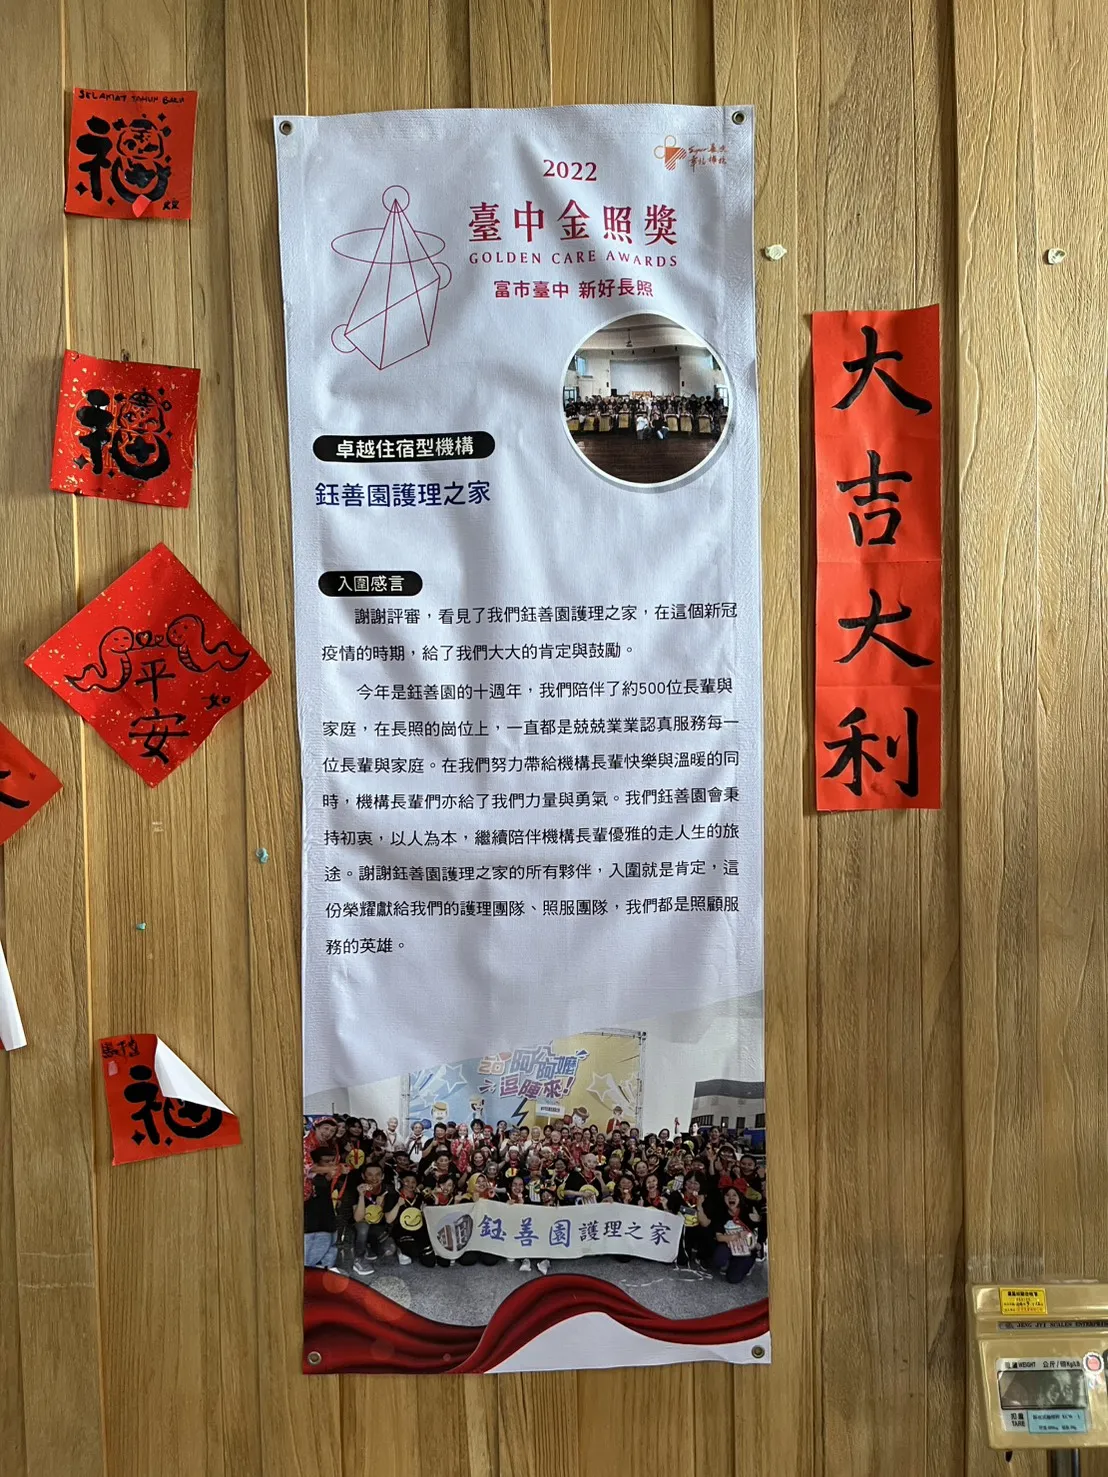 SELAMAT TAHUN BARU
福
福
平
安
福
2022
臺中金照獎
GOLDEN CARE AWARDS
富市臺中 新好長照
卓越住宿型機構
鈺善園護理之家
入圍感言
謝謝評審，看見了我們鈺善園護理之家，在這個新冠
疫情的時期，給了我們大大的肯定與鼓勵。
今年是鈺善園的十週年，我們陪伴了約500位長輩與
家庭，在長照的崗位上，一直都是兢兢業業認真服務每一
位長輩與家庭。在我們努力帶給機構長輩快樂與溫暖的同
時，機構長輩們亦給了我們力量與勇氣。我們鈺善園會秉
持初衷，以人為本，繼續陪伴機構長輩優雅的走人生的旅
途。謝謝鈺善園護理之家的所有夥伴，入圍就是肯定，這
份榮耀獻給我們的護理團隊、照服團隊，我們都是照顧服
務的英雄。
阿公阿嬤
逗陣來!
鈺善園護理之家
大
吉
大
利
JENG JYI SCALES ENTERPRISE
重量WEIGHT 公斤/磅Kg/Lb
扣重
TARE